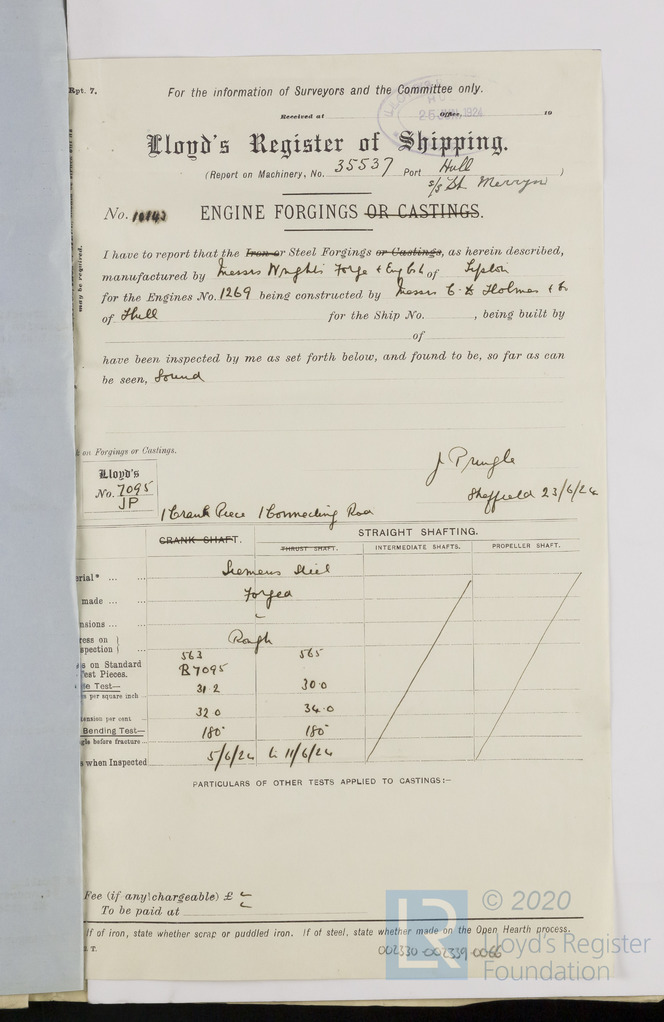 Rpt. 7.
For the information of Surveyors and the Committee only.
Received at Office, 19
25 JUN 1924
Lloyd's Register of Shipping.
(Report on Machinery, No. 35537 Port Hull )
s/s St. Merryn
No. ENGINE FORGINGS OR CASTINGS.
may be required.
I have to report that the Iron or Steel Forgings or Castings, as herein described,
manufactured by Messrs Wrights Forge & Eng of Tipton
for the Engines No. 1269 being constructed by Messrs C. D. Holmes &
of Hull for the Ship No. , being built by
of
have been inspected by me as set forth below, and found to be, so far as can
be seen, Sound
on Forgings or Castings.
Lloyd's
No. 7095
JP
J Pringle
Sheffield 23/6/24
1 Crank Piece 1 Connecting Rod
CRANK SHAFT. STRAIGHT SHAFTING.
THRUST SHAFT. INTERMEDIATE SHAFTS. PROPELLER SHAFT.
erial* ... ... Siemens Steel
made ... ... Forged
nsions ... ...
ress on )
spection ) Rough
563 565
s on Standard
Test Pieces. R7095
le Test—
s per square inch ... 31.2 30.0
tension per cent ... 32.0 34.0
Bending Test— 180° 180°
gle before fracture ...
s when Inspected 5/6/24 to 11/6/24
PARTICULARS OF OTHER TESTS APPLIED TO CASTINGS:—
Fee (if any chargeable) £
To be paid at
If of iron, state whether scrap or puddled iron. If of steel, state whether made on the Open Hearth process.
S. T.
002330-002339-0066
LR
© 2020
Lloyd's Register
Foundation